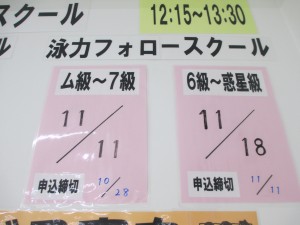 スクール
12:15~13:30
ル
泳力フォロースクール
ム級~7級
11/11
申込締切 10/28
6級~惑星級
11/18
申込締切 11/11